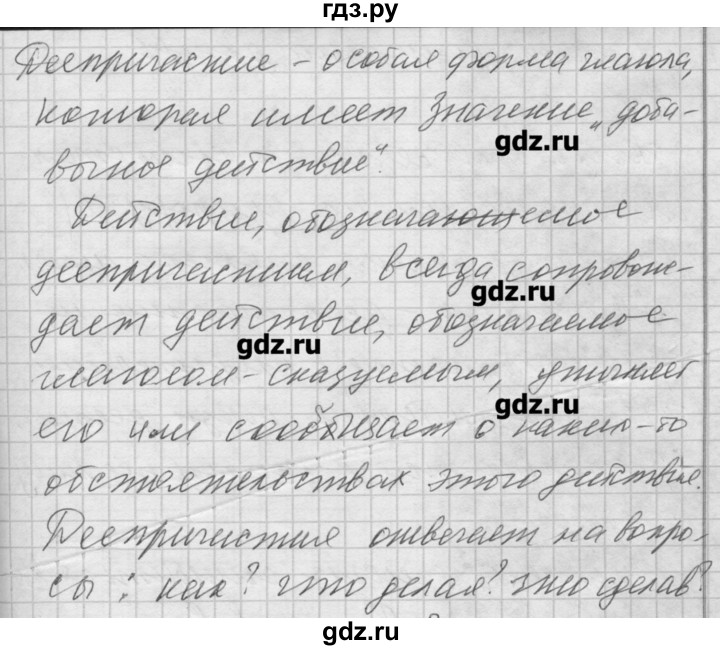 гдз.ру
Деепричастие – особая форма глагола,
которая имеет значение „доба-
gdz.ru
вычное действие".
Действие, обозначаемое
деепричастием, всегда сопровож-
gdz.ru
дает действие, обозначаемое
gdz.ru
глаголом-сказуемым, уточняет
gdz.ru
его или сообщает о каких-то
обстоятельствах этого действия.
Деепричастия отвечает на вопро-
сы: как? что делая? что сделав?
gdz.ru